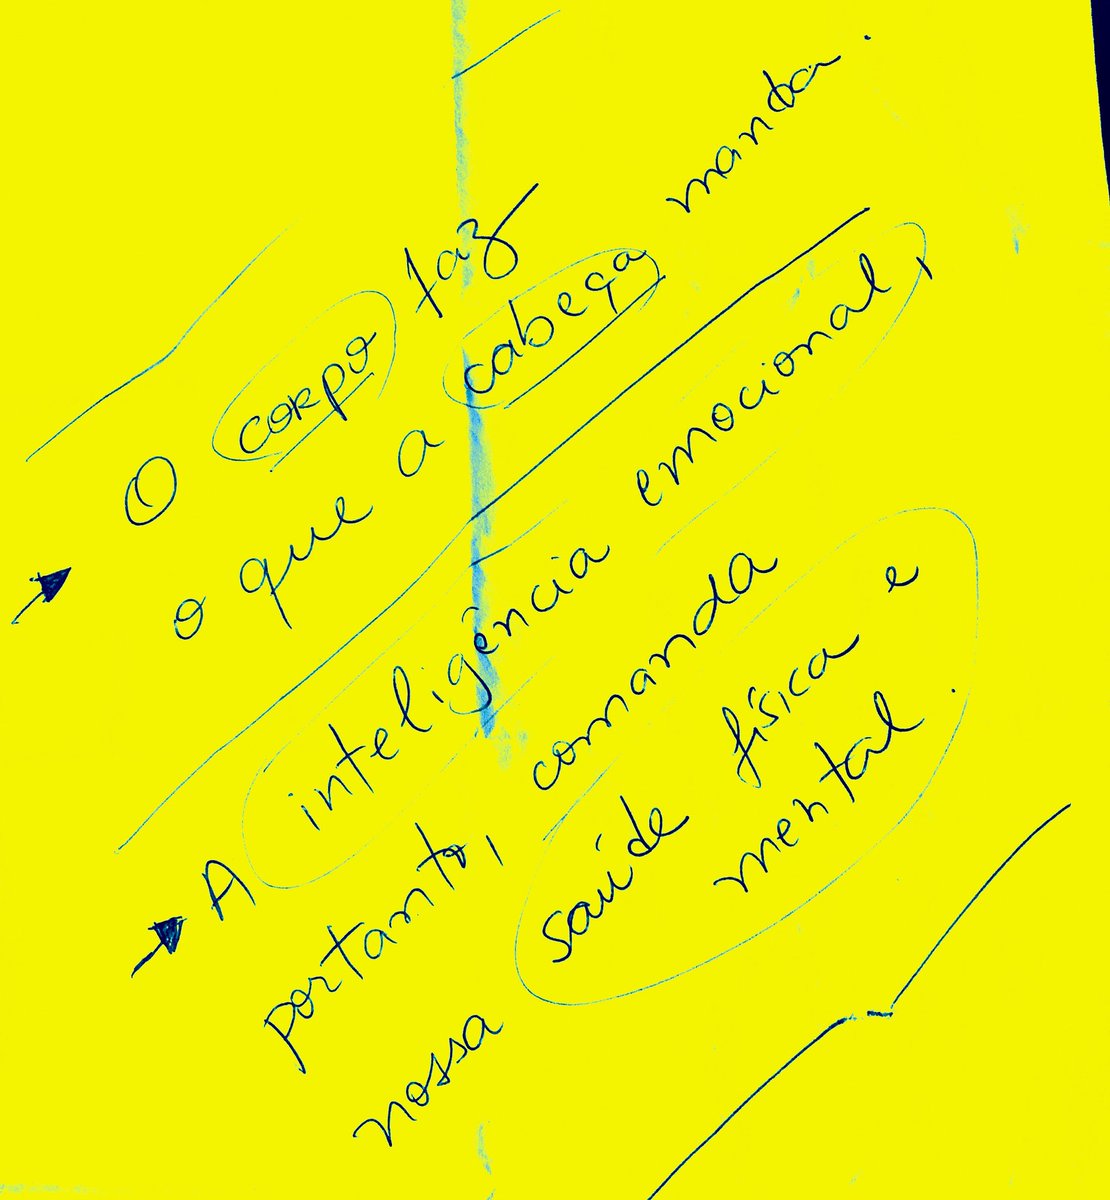 O corpo faz
o que a cabeça manda.
A inteligência emocional,
portanto, comanda
nossa saúde física e
mental.